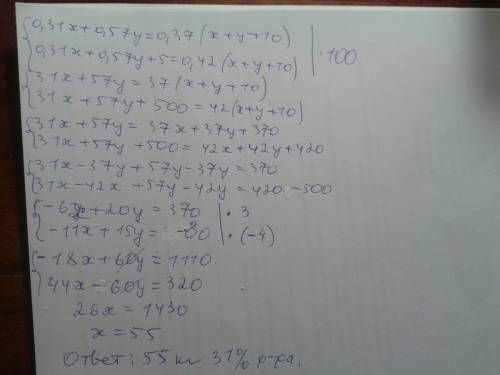 {0,31x+0,57y=0,37(x+y+10) | ·100
{0,31x+0,57y+5=0,42(x+y+10)
{31x+57y=37(x+y+10)
{31x+57y+500=42(x+y+10)
{31x+57y=37x+37y+370
{31x+57y+500=42x+42y+420
{31x-37y+57y-37y=370
{31x-42x+57y-42y=420-500
{-6x+20y=370 | ·3
{-11x+15y=-80 | ·(-4)
{-18x+60y=1110
{44x-60y=320
26x=1430
x=55
Ответ: 55 кг 31% р-ра.